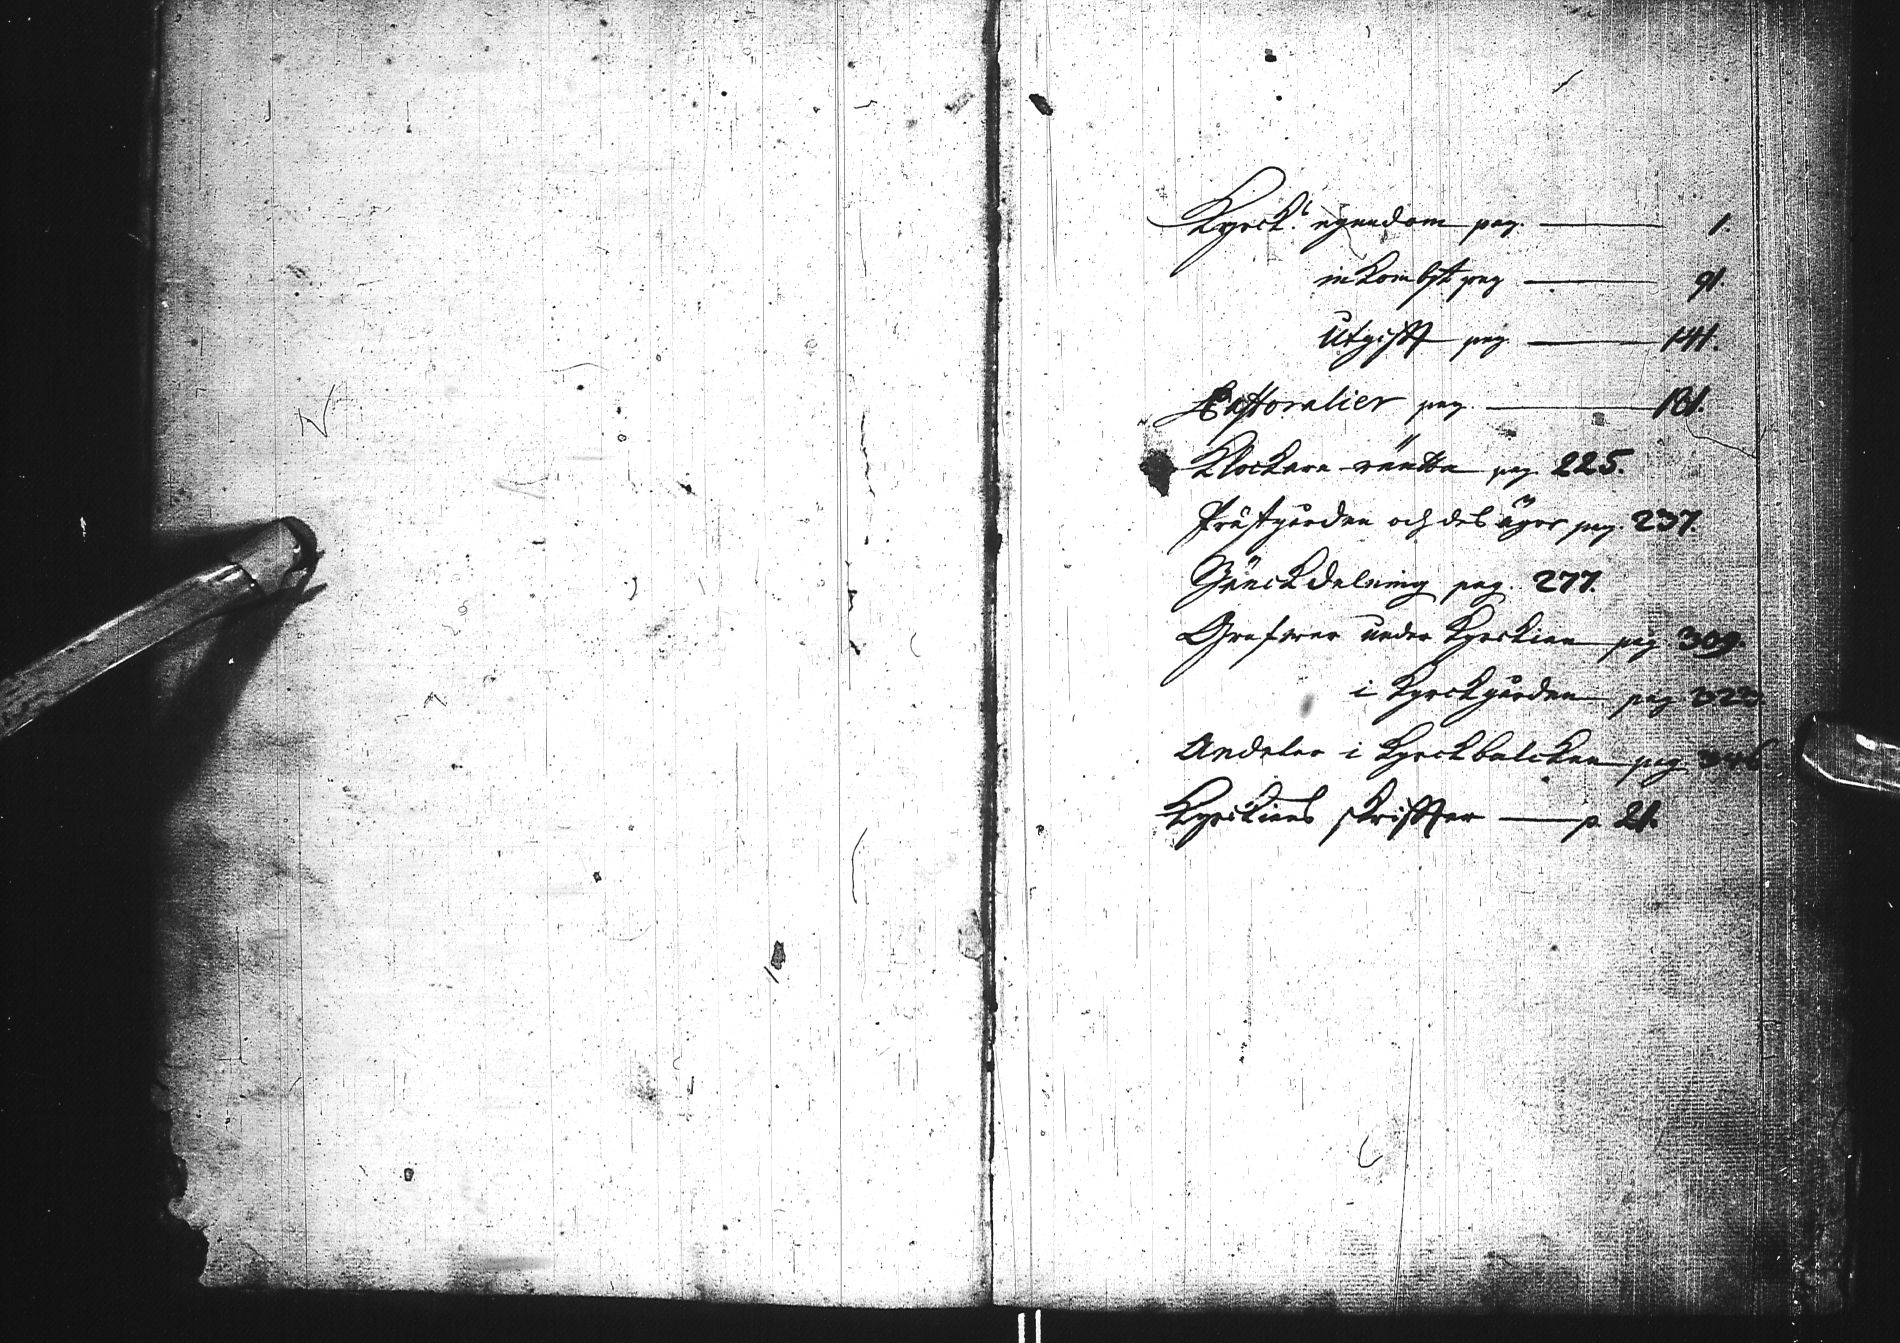 Kyrck.s egendom pag. — 1.
inkombst pag — 91.
Utgifft pag — 141.
Pastoralier pag. — 181.
Klockare-räntta pag. 225.
Prästgården och des ägor pag. 237.
Bänckdelning pag. 277.
Grafwar under Kyrckian pag. 309.
i Kyrckgården pag. 323.
Andelar i Kyrckbalcken pag
Kyrckians skriffter — p. 21.